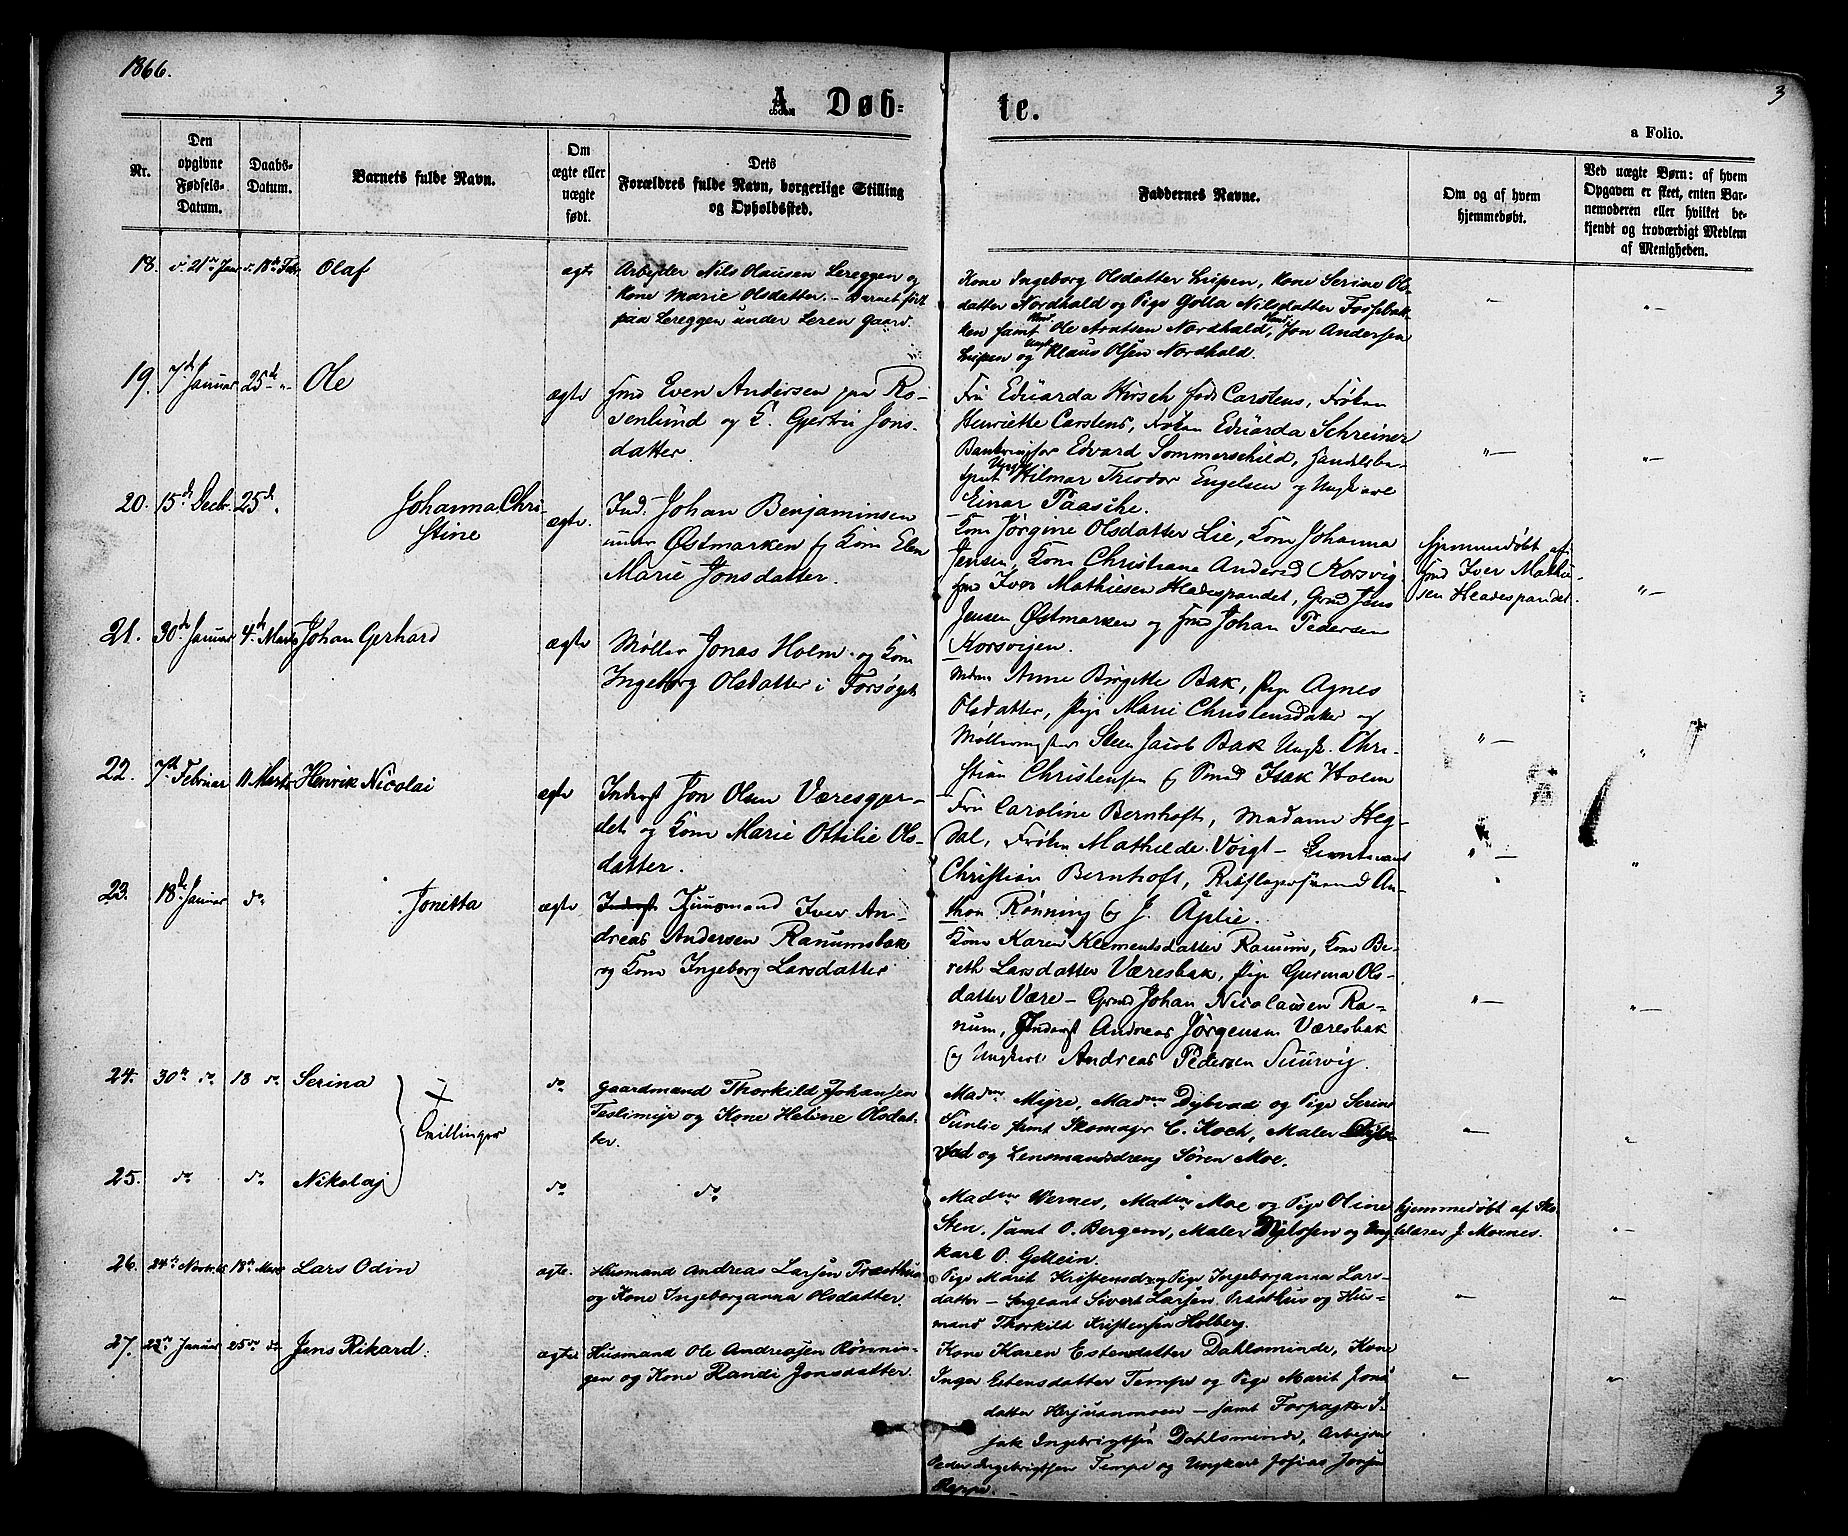 1866.
3
A. Døb-
te.
a Folio.
Nr.
Den opgivne Fødsels-Datum.
Daabs-Datum.
Barnets fulde Navn.
Om ægte eller uægte født.
Dets Forældres fulde Navn, borgerlige Stilling og Opholdssted.
Faddernes Navne.
Om og af hvem hjemmedøbt.
Ved uægte Børn: af hvem Opgaven er skeet, enten Barnemoderen eller hvilket bekjendt og troværdigt Medlem af Menigheden.
18. d. 21de Jan d. 18de Feb. Olaf
ægte
Arbejder Nils Olausen Lereggen og
Kone Marie Olsdatter. – Barnet født
paa Lereggen under Leren Gaard.
Kone Ingeborg Olsdatter, Kone Serine Ols-
datter Nordhald og Pige Golla Nilsdatter Fossebak-
ken samt Ole Arntsen Nordhald, Jon Andersen
og Ungk Klaus Olsen Nordhald.
19. 7de Januar 25de " Ole
ægte
Hmd Even Andersen paa Ro-
senlund og K. Gjertru Jons-
datter.
Fru Eduarda Hirsch født Carstens, Frøken
Henriette Carstens, Frøken Eduarda Schreiner
Edvard Sommerschild, Handelsbe-
tjent Hilmar Theodor Engelsen og Ungkarl
Einar Paasche.
20. 15de Decbr. 25de " Johanna Chri-
stine
ægte.
Ind. Johan Benjaminsen
under Østmarken og Kone Elen
Marie Jonsdatter.
Kone Jørgine Olsdatter Lie, Kone Johanna
Jensen, Kone Christiane Anders D Korsvig
Hmd Iver Mathiesen Hladespandet, Gmd Jens
Jensen Østmarken og Hmd Johan Pedersen
Korsvigen.
hjemmedøbt af
Hmd Iver Mathie-
sen Hladespandet.
21. 30de Januar 4de Marts Johan Gerhard
ægte
Møller Jonas Holm og Kone
Ingeborg Olsdatter i Forsøget
Anne Birgitte Bak, Pige Agnes
Olsdatter, Pige Marie Christensdatter og
Møllermester Steen Jacob Bak Ungk. Chri-
stian Christensen og Smed Isak Holm
22. 7de Februar 11 Marts Henrik Nicolai
ægte
Inderst Jon Olsen Væresgjer-
det og Kone Marie Ottilie Ols-
datter.
Fru Caroline Bernhoft, Madame Heg-
dal, Frøken Mathilde Voigt – Lieutenant
Christian Bernhoft, An-
thon Rønning og J. Øplie.
23. 18de Januar do Jonetta
ægte
Inderst Huusmand Iver An-
dreas Andersen Ranumsbak
og Kone Ingeborg Larsdatter
Kone Karen Klementsdatter Ranum, Kone Be-
reth Larsdatter Væresbak, Pige Gurina Ols-
datter Være – Gmd Johan Nicolaisen Ra-
num, Inderst Andreas Jørgensen Væresbak
og Ungkarl Andreas Pedersen
24. 30te do 18 do Serina
Tvillinger
do
Gaardmand Thorkild Johansen
og Kone Heline Olsdat-
ter.
Madme Myre, Madme Dybvad og Pige Serine
samt Skomager C. Koch, Maler Dyb-
vad og Lensmandsdreng Søren Moe.
25. do do Nikolaj
do
do
Madme Wernes, Madme Moe og Pige Oline
Sten. samt O. Bergem, Maler og Ung-
karl O.
hjemmedøbt af Sko-
lelærer J. Moxnes.
26. 24de Novbr. 65 18de Marts Lars Odin
ægte.
Husmand Andreas Larsen Præsthus
og Kone Ingeborganna Olsdatter.
Pige Marit Kristensd og Pige Ingeborganna Lars-
datter – Sergeant Sivert Larsen Præsthus og Hus-
mand Thorkild Kristensen Holberg.
27. 22de Januar 25de do Jens Rikard.
ægte
Husmand Ole Andreasen Rønnin-
gen og Kone Randi Jonsdatter.
Kone Karen Estensdatter Dahlsminde, Kone
Inger Estensdatter Tempe og Pige Marit Jons
datter – samt Forpagter I-
sak Ingebrigtsen Dahlsminde, Arbejder
Peder Ingebrigtsen Tempe og Ungkarl Josias Jonsen
Reppe.